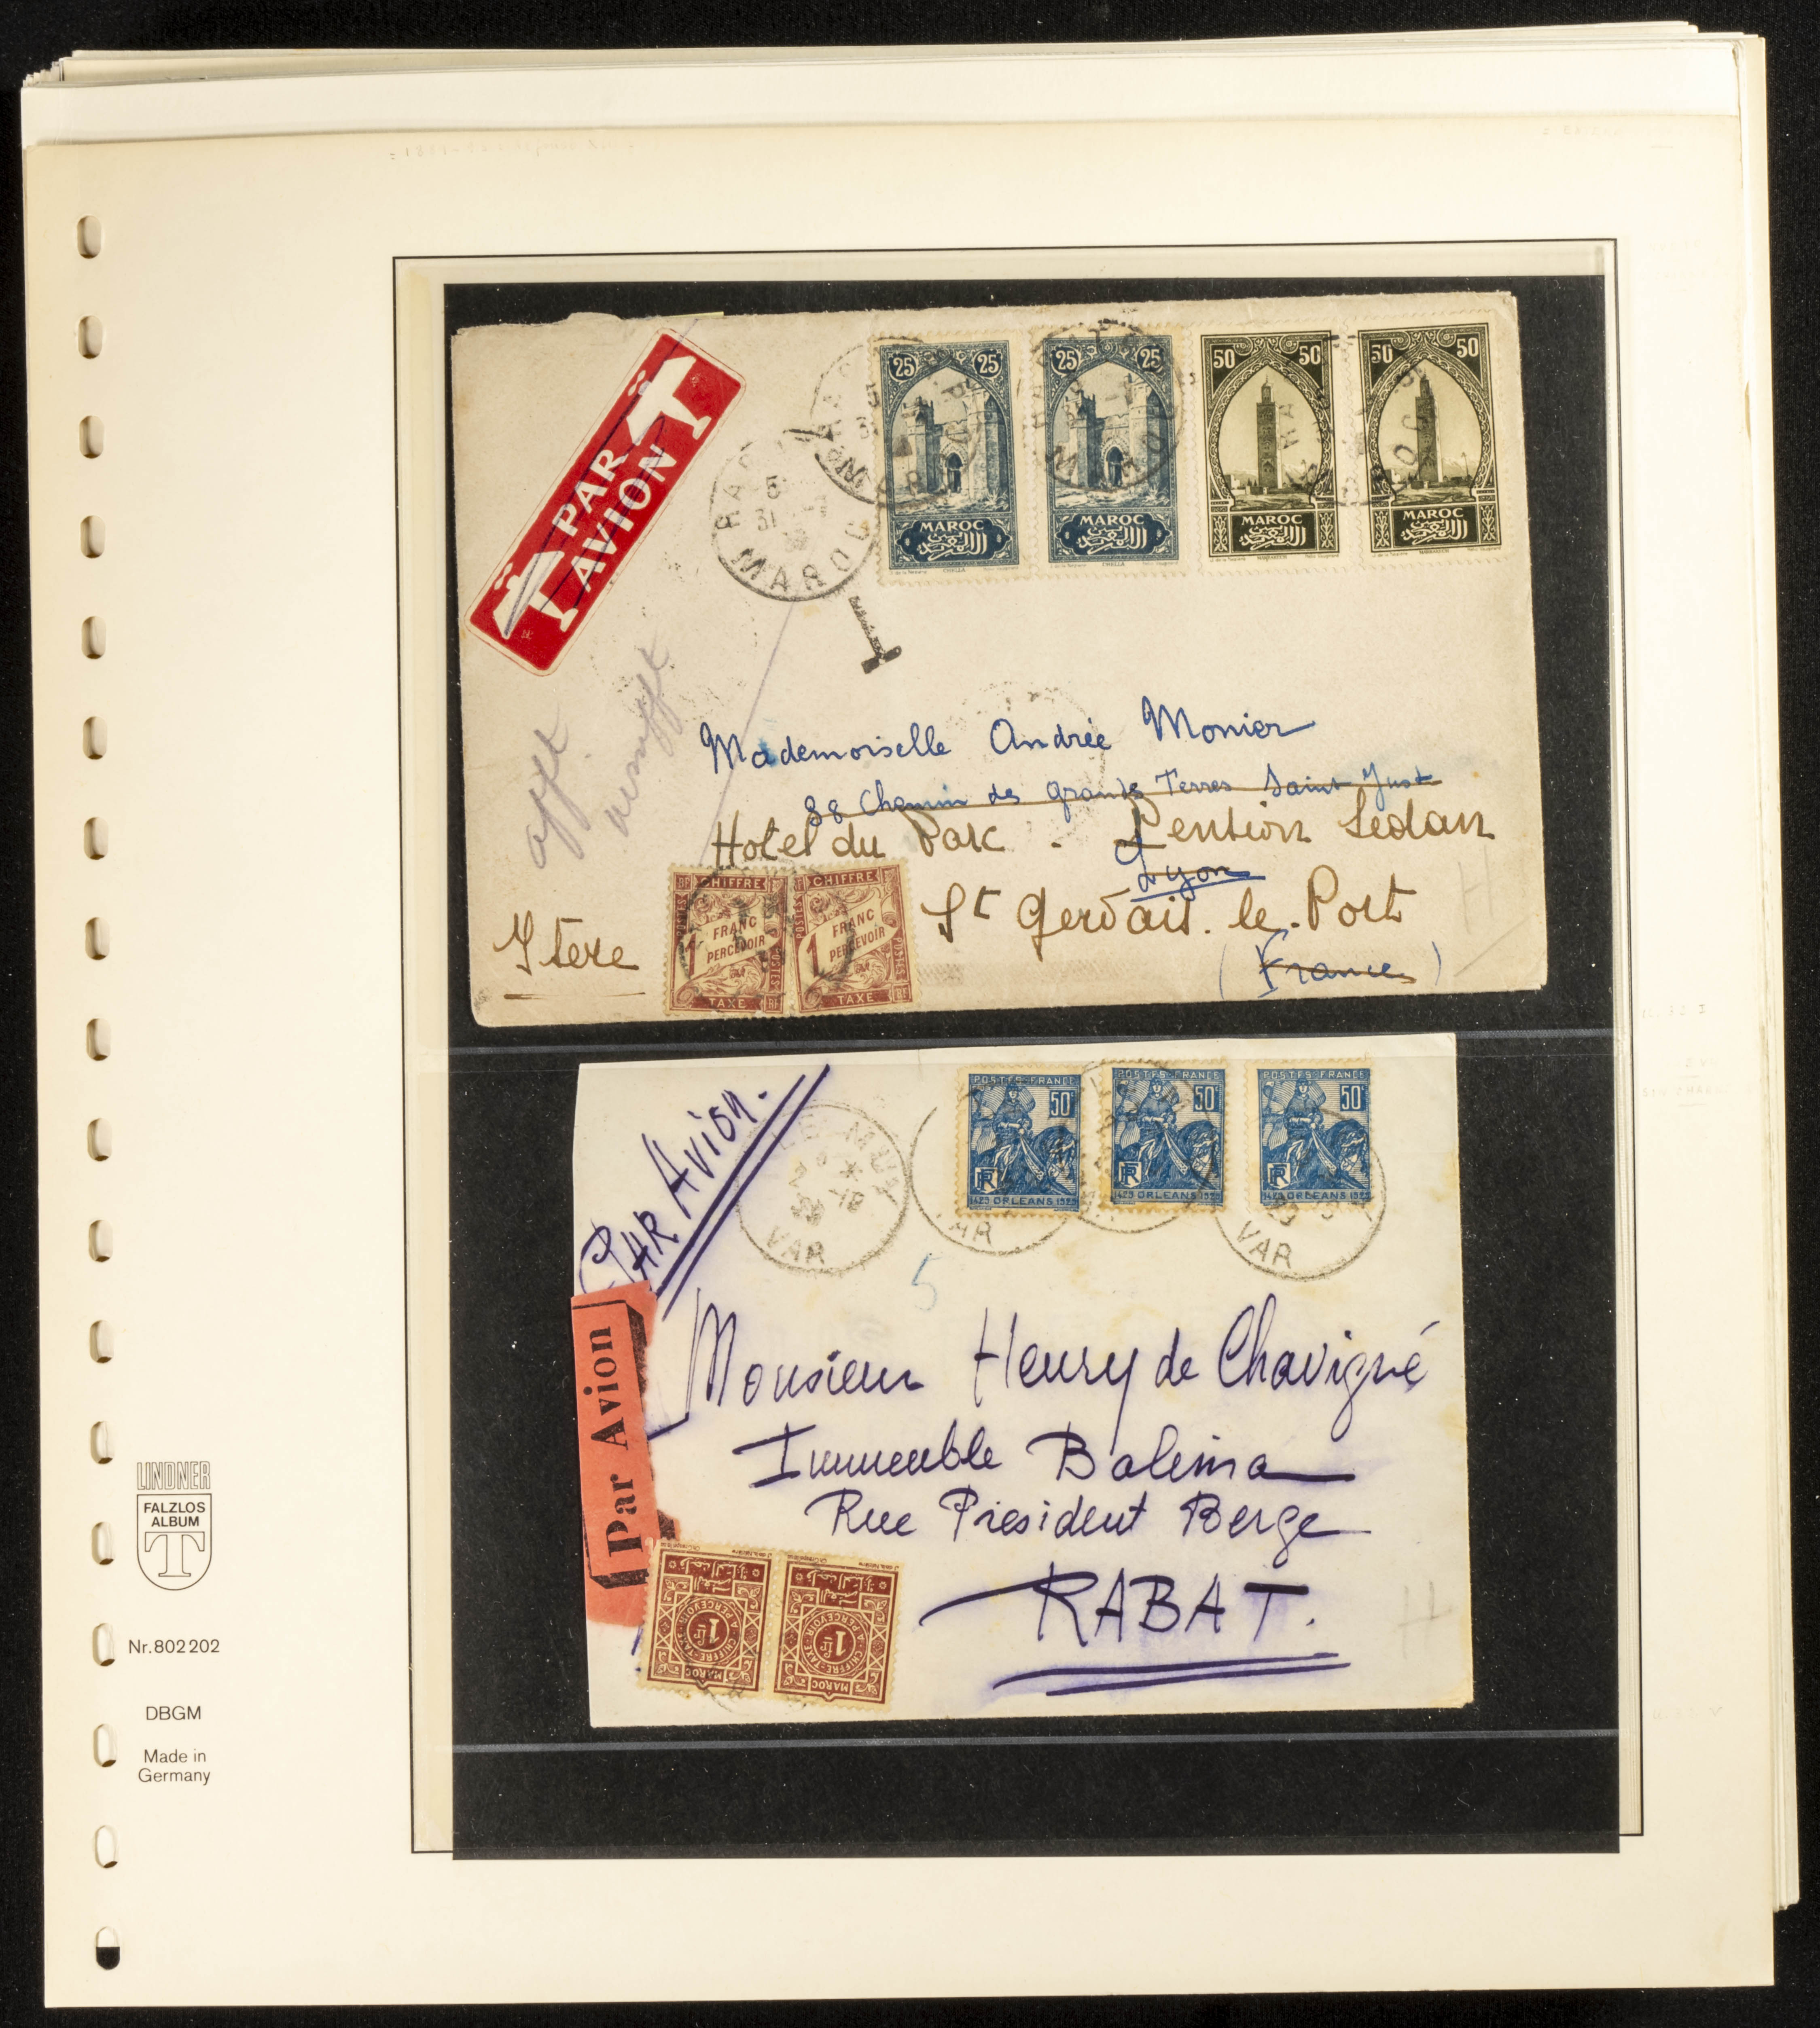 PAR
AVION
25 25
MAROC
CHELLA
25 25
MAROC
CHELLA
50 50
MAROC
MARRAKECH
50 50
MAROC
MARRAKECH
MAROC
T
Mademoiselle Andrée Monier
38 Chemin des Grandes Terres Saint Just
Hotel du Parc. Pention Sedan
Lyon
St Gervais. le. Port
Isère
(France)
CHIFFRE
1 FRANC
PERCEVOIR
POSTES
TAXE
RF
CHIFFRE
1 FRANC
PERCEVOIR
POSTES
TAXE
RF
H
PAR AVION.
Par Avion
VAR
VAR
POSTES-FRANCE
50c
RF
1429 ORLEANS 1929
POSTES-FRANCE
50c
RF
1429 ORLEANS 1929
POSTES-FRANCE
50c
RF
1429 ORLEANS 1929
5
Monsieur Henry de Chavigné
Immeuble Balima
Rue President Berge
RABAT.
MAROC
CHIFFRE-TAXE
A PERCEVOIR
1 Fr
MAROC
CHIFFRE-TAXE
A PERCEVOIR
1 Fr
H
LINDNER
FALZLOS
ALBUM
T
Nr. 802 202
DBGM
Made in
Germany